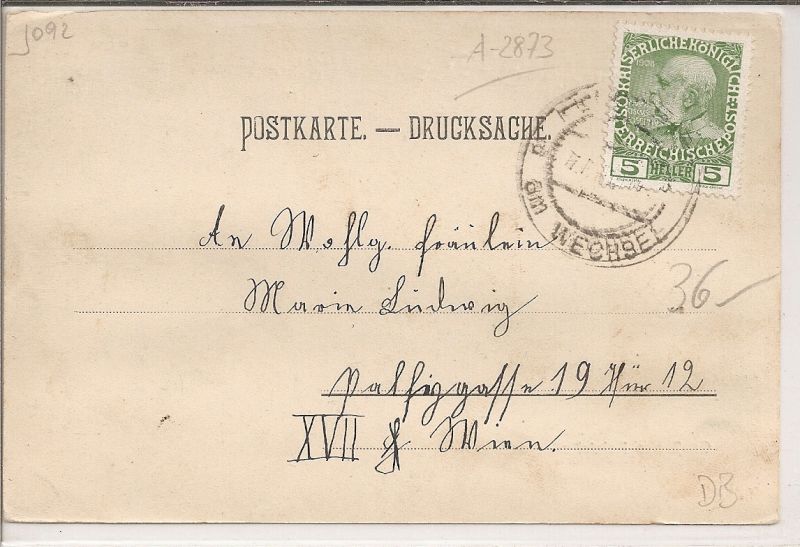 J092
A-2873
KAISERLICHE KÖNIGLICHE
1908
ÖSTERREICHISCHE POST
5 HELLER 5
am WECHSEL
POSTKARTE. — DRUCKSACHE.
An Wohlg. Fräulein
Marie Ludwig
36-
Palfygasse 19 Thür 12
XVII Wien.
DB